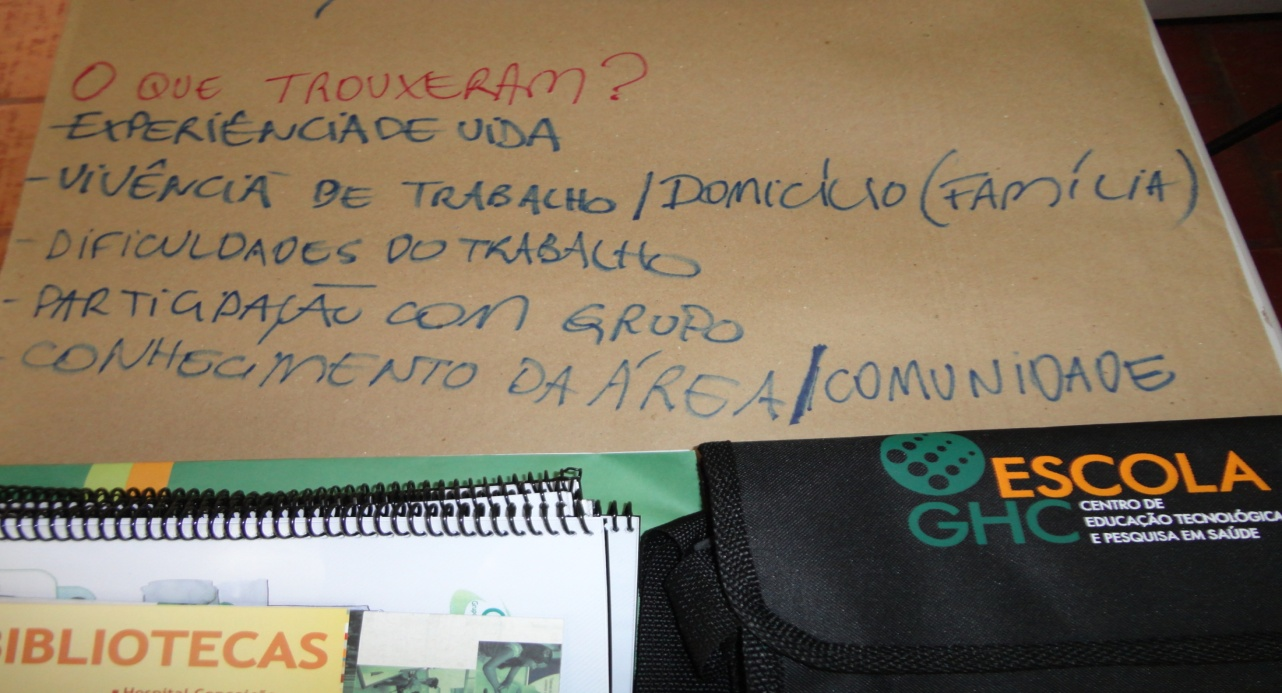 O QUE TROUXERAM?
-EXPERIÊNCIA DE VIDA
- VIVÊNCIA DE TRABALHO / DOMICÍLIO (FAMÍLIA)
- DIFICULDADES DO TRABALHO
- PARTICIPAÇÃO COM GRUPO
- CONHECIMENTO DA ÁREA/COMUNIDADE
ESCOLA
GHC
CENTRO DE
EDUCAÇÃO TECNOLÓGICA
E PESQUISA EM SAÚDE
BIBLIOTECAS
Hospital